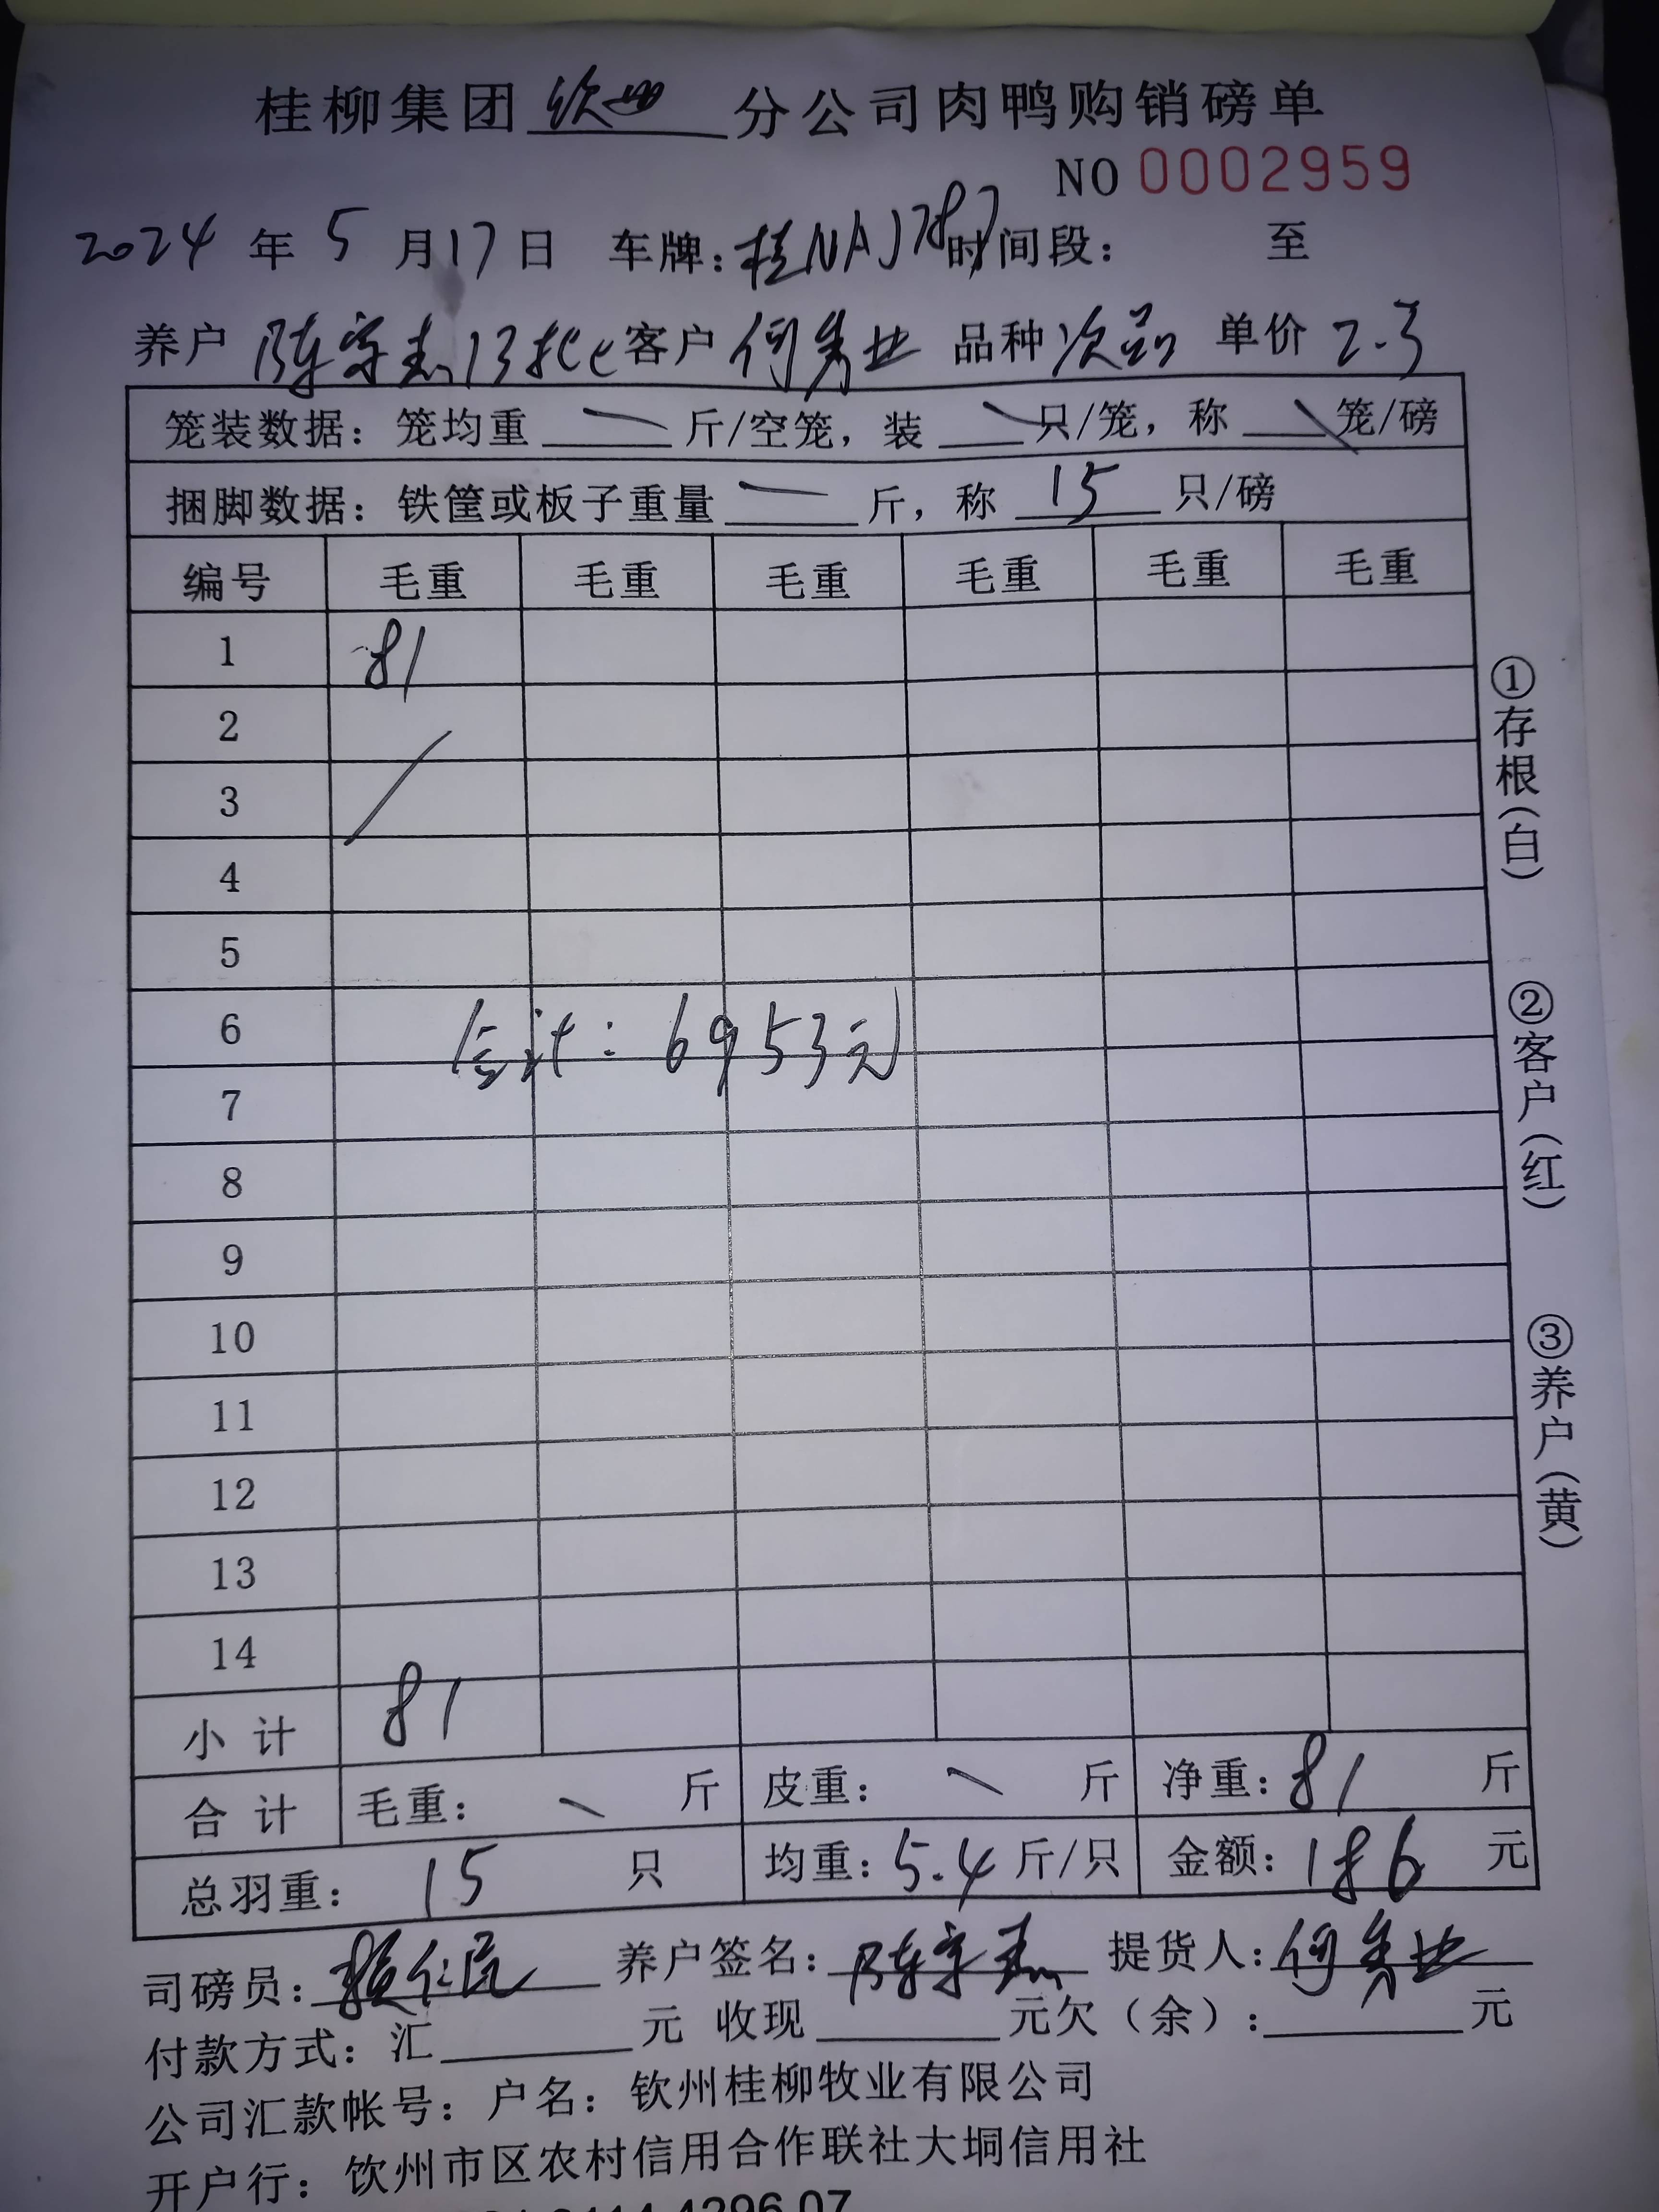 桂柳集团 钦州 分公司肉鸭购销磅单
NO 0002959
2024 年 5 月 17 日 车牌：桂NAJ787 时间段： 至
养户 陈宗杰13批 客户 何秀业 品种 次品 单价 2.3
笼装数据：笼均重 斤/空笼，装 只/笼，称 笼/磅
捆脚数据：铁筐或板子重量 斤，称 15 只/磅
编号 毛重 毛重 毛重 毛重 毛重 毛重
1 81
2
3
4
5
6
合计：6953元
7
8
9
10
11
12
13
14
小计 81
合计 毛重： 斤 皮重： 斤 净重：81 斤
总羽重： 15 只 均重：5.4 斤/只 金额：186 元
司磅员：赖仁民 养户签名：陈宗杰 提货人：何秀业
付款方式：汇 元 收现 元欠（余）： 元
公司汇款帐号：户名：钦州桂柳牧业有限公司
开户行：钦州市区农村信用合作联社大垌信用社
①存根(白)
②客户(红)
③养户(黄)